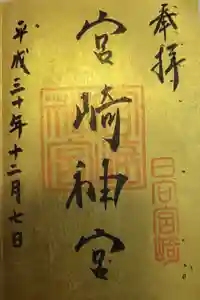 奉拝
宮崎神宮
平成三十年十二月七日